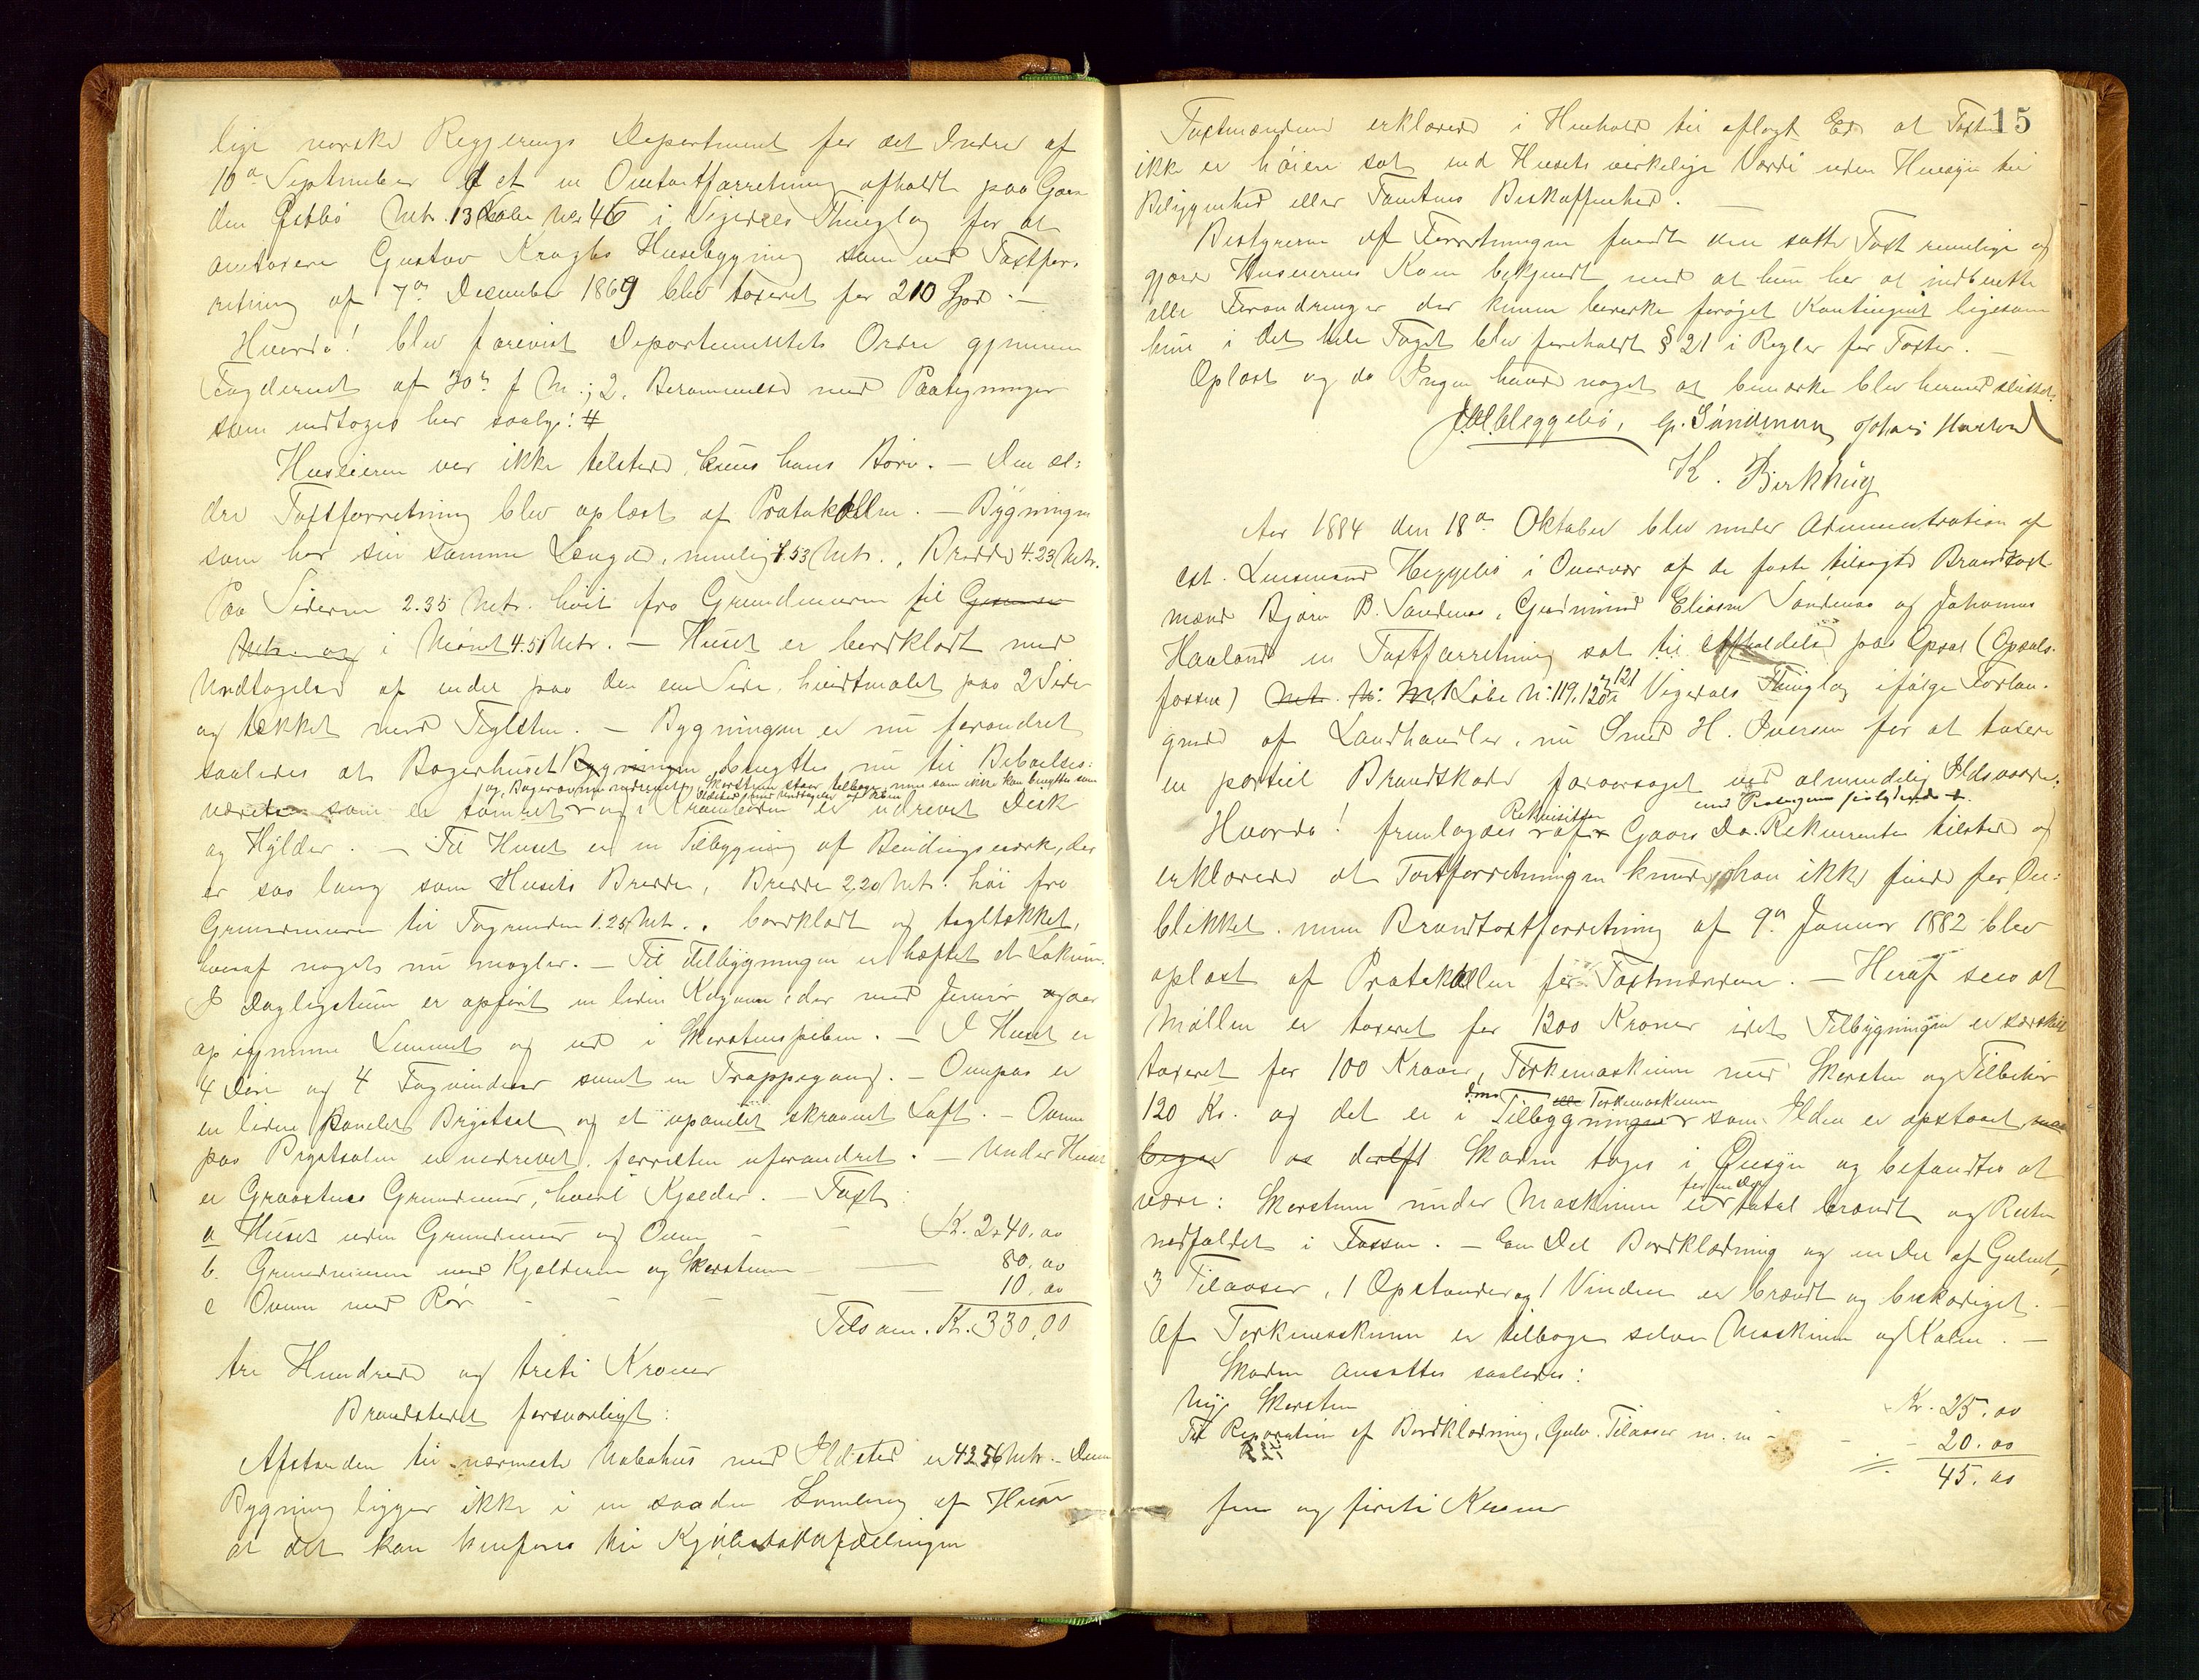 lige norske Regjerings Departement for det Indre af
10de September d et en Omtaxtforretning afholdt paa Gaar
den Østbø Mtr. 13 Løbe No 46 i Vigedals Thinglag for at
omtaxere Gustav Kraghs Husebygning som ved Taxtfor-
retning af 7de December 1869 blev taxeret for 210 Spd. —
Hvorda! blev forevist Departementets Ordre gjennem
Fogderiet af 30te f M.; 2. Berammelse med Paategninger
som indtages her saalyd: #
Huseieren var ikke tilstede, kuns hans Børn. — Den æl-
dre Taxtforretning blev oplæst af Protokollen. — Bygningen
som har sin samme Længde, nemlig 7.53 Mtr., Bredde 4.23 Mtr.
Paa Siderne 2.35 Mtr. høit fra Grundmuren til
Mtr. og i Mønet 4.51 Mtr. — Huset er bordklædt med
Undtagelse af endel paa den ene Side, hvidtmalet paa 2 Sider
og tækket med Teglsten. — Bygningen er nu forandret
saaledes at Bagerhuset Bygningen benyttes nu til Beboelses-
og Bagerovnen nedrevet, Skorstenen staar tilbage, men som ikke kan benyttes som
Ildsted, med Undtagelse af
værelse som er tømret og i Kramboden er udrevet Disk
og Hylder. — Til Huset er en Tilbygning af Bindingsværk, der
er saa lang som Husets Bredde, Bredde 2,20 Mtr. høi fra
Grundmuren til Tagrenden 1.25 Mtr., bordklædt og tegltækket,
hvoraf noget nu mangler. — Til Tilbygningen er hæftet et Lokum.
I Dagligstuen er opført en liden Kogeovn, der med Jernrør gaar
op igjennem Lemmet og ud i Skorstenspiben. — I Huset er
4 Døre og 4 Fagvinduer samt en Trappegang. — Ovenpaa er
en liden panelet Brystsal og et upanelet skraanet Loft. — Ovnen
paa Brystsalen er nedrevet, forresten uforandret. — Under Huset
er Graastens Grundmur, hvori Kjelder. — Taxt:
a Huset uden Grundmur og Ovn — — Kr. 240,00
b. Grundmuren med Kjelderen og Skorstenen — — 80,00
c Ovnen med Rør — — — — 10,00
Tilsam. Kr. 330,00
tre Hundrede og treti Kroner
Brandstedet forsvarligt:
Afstanden til nærmeste Nabohus med Ildsted er 42.56 Mtr. — Denne
Bygning ligger ikke i en saadan Samling af Huse
at det kan henføres til Kjøbstadafdelingen
15
Taxtmændene erklærede i Henhold til aflagt Ed at Taxten
ikke er høiere sat end Husets virkelige Værdi uden Hensyn til
Beliggenhed eller Tomtens Beskaffenhed. —
Bestyreren af Forretningen fandt den satte Taxt rimelig og
gjorde Huseierens Kone bekjendt med at hun har at indberette
alle Forandringer der kunne bevirke forøget Kontingent ligesom
hun i det hele Taget blev foreholdt § 21 i Regler for Taxter. —
Oplæst og da Ingen havde noget at bemærke blev hermed sluttet.
Heggebø, G. Sandenæs Johans Havland
K. Birkhug
Aar 1884 den 18de Oktober blev under Administration af
cst. Lensmand Heggebø i Overvær af de faste tilsagte Brandtaxt-
mænd Bjørn B. Sandenæs, Gudmund Eliasen Sandenæs og Johannes
Havland en Taxtforretning sat til Afholdelse paa Opsal (Opsals-
fossen) Løbe No 119, 120 og 121 i Vigedals Thinglag ifølge Forlan-
gende af Landhandler, nu Smed H. Iversen for at taxere
en partiel Brandskade foraarsaget ved almindelig Ildsvaade:
Rekvisition med Paategning saalydende #.
Hvorda! fremlagdes af Gaars Do. Rekvirenten tilstede og
erklærede at Taxtforretningen kunde han ikke finde for Øie-
blikket men Brandtaxtforretning af 9de Januar 1882 blev
oplæst af Protokollen for Taxtmændene. — Heraf sees at
Møllen er taxeret for 1200 Kroner idet Tilbygningen er særskilt
taxeret for 100 Kroner, Tørkemaskinen med Skorsten og Tilbehør
120 Kr. og det er i Tilbygningen Tørkemaskinen som Ilden er opstaaet
Skaden toges i Øiesyn og befandtes at
være: Skorstenen under Maskinen er for en Del total brændt og Resten
nedfaldet i Fossen. — En Del Bordklædning og en Del af Gulvet,
3 Tilaaser, 1 Opstander og 1 Vindue er brændt og beskadiget. —
Af Tørkemaskinen er tilbage selve Maskinen og Kalen. —
Skaden ansættes saaledes:
Ny Skorsten — Kr. 25,00
Til Reparation af Bordklædning, Gulv, Tilaaser m. m — — 20,00
45,00
fem og firti Kroner